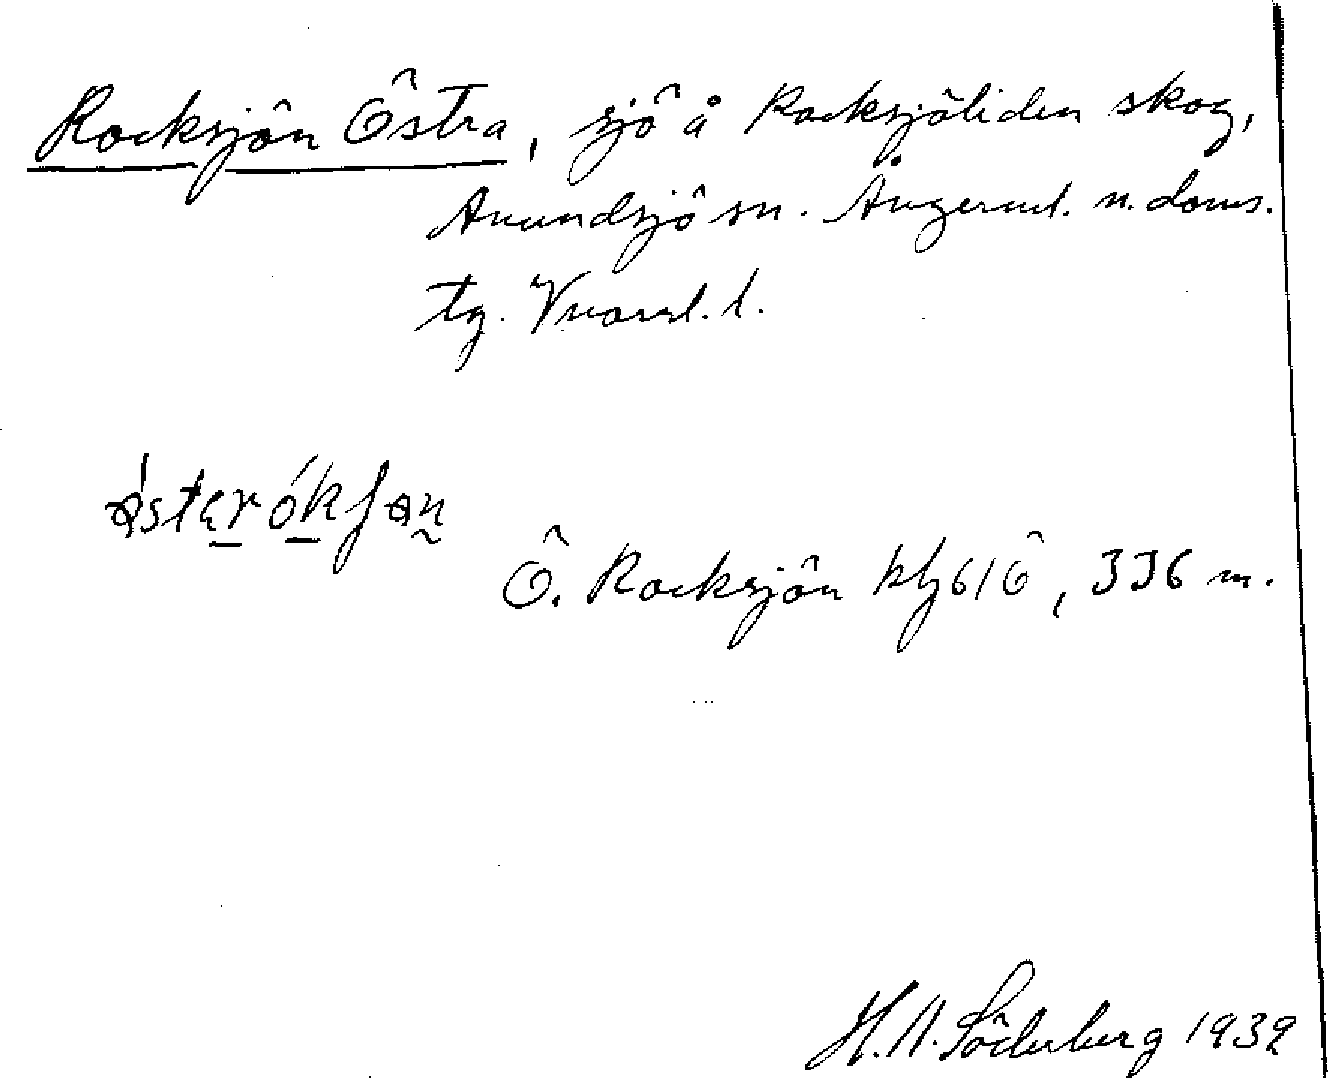 Rocksjön Östra, sjö å Rocksjöliden skog,
Anundsjö sn. Ångerml. n. doms.
tg. Vnorrl. l.
Ö. Rocksjön blz 61 Ö, 336 m.
H. A. Söderberg 1932